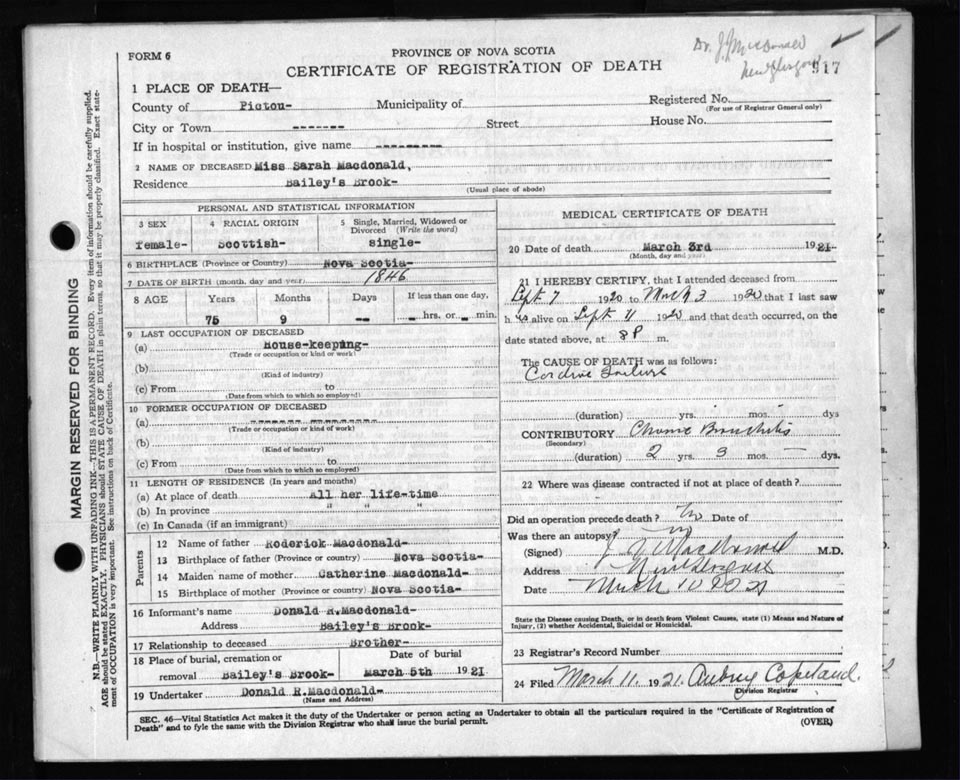 FORM 6
PROVINCE OF NOVA SCOTIA
CERTIFICATE OF REGISTRATION OF DEATH
Dr. J. J. MacDonald
New Glasgow
917
1 PLACE OF DEATH—
County of Pictou- Municipality of Registered No.
(For use of Registrar General only)
City or Town ------- Street House No.
If in hospital or institution, give name ---------
2 NAME OF DECEASED Miss Sarah Macdonald,
Residence Bailey's Brook-
(Usual place of abode)
PERSONAL AND STATISTICAL INFORMATION
3 SEX 4 RACIAL ORIGIN 5 Single, Married, Widowed or
Divorced (Write the word)
female- Scottish- single-
6 BIRTHPLACE (Province or Country) Nova Scotia-
7 DATE OF BIRTH (month, day and year) 1846
8 AGE Years Months Days If less than one day,
75 9 -- -- hrs. or -- min.
9 LAST OCCUPATION OF DECEASED
(a) House-keeping-
(Trade or occupation or kind or work)
(b)
(Kind of industry)
(c) From to
(Date from which to which so employed)
10 FORMER OCCUPATION OF DECEASED
(a) ------- --------
(Trade or occupation or kind of work)
(b)
(Kind of industry)
(c) From to
(Date from which to which so employed)
11 LENGTH OF RESIDENCE (In years and months)
(a) At place of death All her life-time
(b) In province " " "
(c) In Canada (if an immigrant)
Parents
12 Name of father Roderick Macdonald-
13 Birthplace of father (Province or country) Nova Scotia-
14 Maiden name of mother Catherine Macdonald-
15 Birthplace of mother (Province or country) Nova Scotia-
16 Informant's name Donald R.Macdonald-
Address Bailey's Brook-
17 Relationship to deceased Brother-
18 Place of burial, cremation or Date of burial
removal Bailey's Brook- March 5th 1921
19 Undertaker Donald R.Macdonald-
(Name and Address)
MEDICAL CERTIFICATE OF DEATH
20 Date of death March 3rd 1921.
(Month, day and year)
21 I HEREBY CERTIFY, that I attended deceased from
Sept 7 1920 to March 3 1920 that I last saw
h alive on Sept 11 1920 and that death occurred, on the
date stated above, at 8 P m.
The CAUSE OF DEATH was as follows:
Cardiac Failure
(duration) yrs. mos. dys
CONTRIBUTORY Chronic Bronchitis
(Secondary)
(duration) 2 yrs. 3 mos. — dys.
22 Where was disease contracted if not at place of death?
Did an operation precede death? No Date of
Was there an autopsy? No
(Signed) J. J. MacDonald M.D.
Address New Glasgow
Date March 10 1921
State the Disease causing Death, or in death from Violent Causes, state (1) Means and Nature of
Injury, (2) whether Accidental, Suicidal or Homicidal.
23 Registrar's Record Number
24 Filed March 11. 1921. Aubrey Copeland.
Division Registrar
SEC. 46—Vital Statistics Act makes it the duty of the Undertaker or person acting as Undertaker to obtain all the particulars required in the "Certificate of Registration of
Death" and to fyle the same with the Division Registrar who shall issue the burial permit. (OVER)
MARGIN RESERVED FOR BINDING
N.B.—WRITE PLAINLY WITH UNFADING INK—THIS IS A PERMANENT RECORD. Every item of information should be carefully supplied.
AGE should be stated EXACTLY. PHYSICIANS should STATE CAUSE OF DEATH in plain terms, so that it may be properly classified. Exact state-
ment of OCCUPATION is very important. See instructions on back of Certificate.